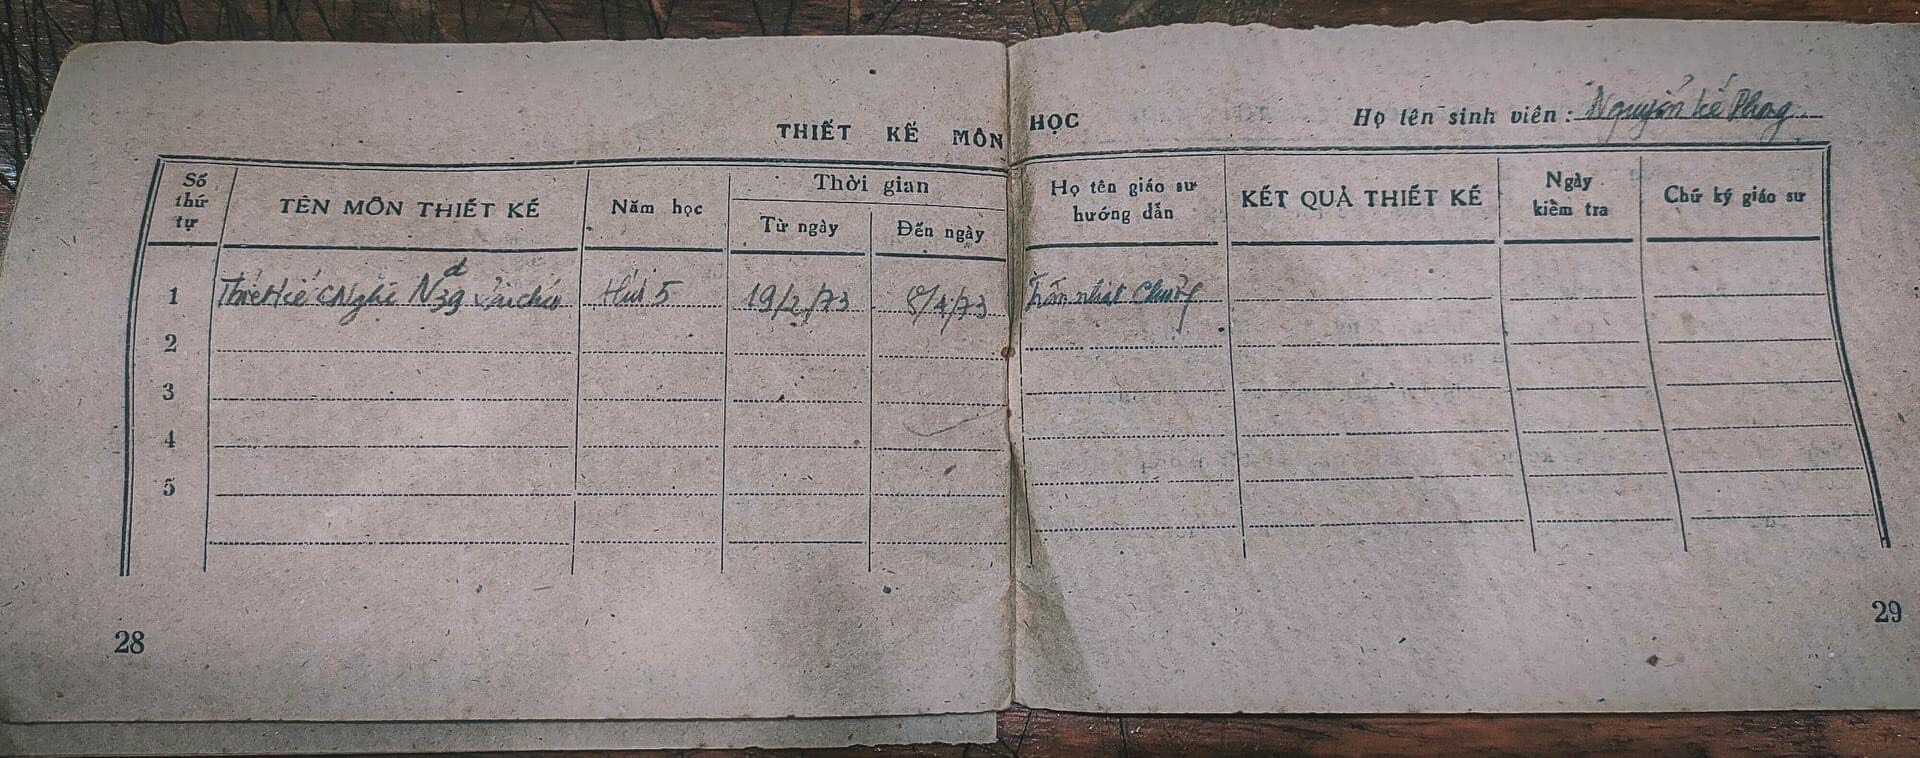 THIẾT KẾ MÔN HỌC
Họ tên sinh viên : Nguyễn Kế Phong
Số thứ tự
TÊN MÔN THIẾT KẾ
Năm học
Thời gian
Từ ngày
Đến ngày
Họ tên giáo sư hướng dẫn
KẾT QUẢ THIẾT KẾ
Ngày kiểm tra
Chữ ký giáo sư
1 Thiết kế 5 19/2/73 8/4/73 Trần nhật
2
3
4
5
28
29